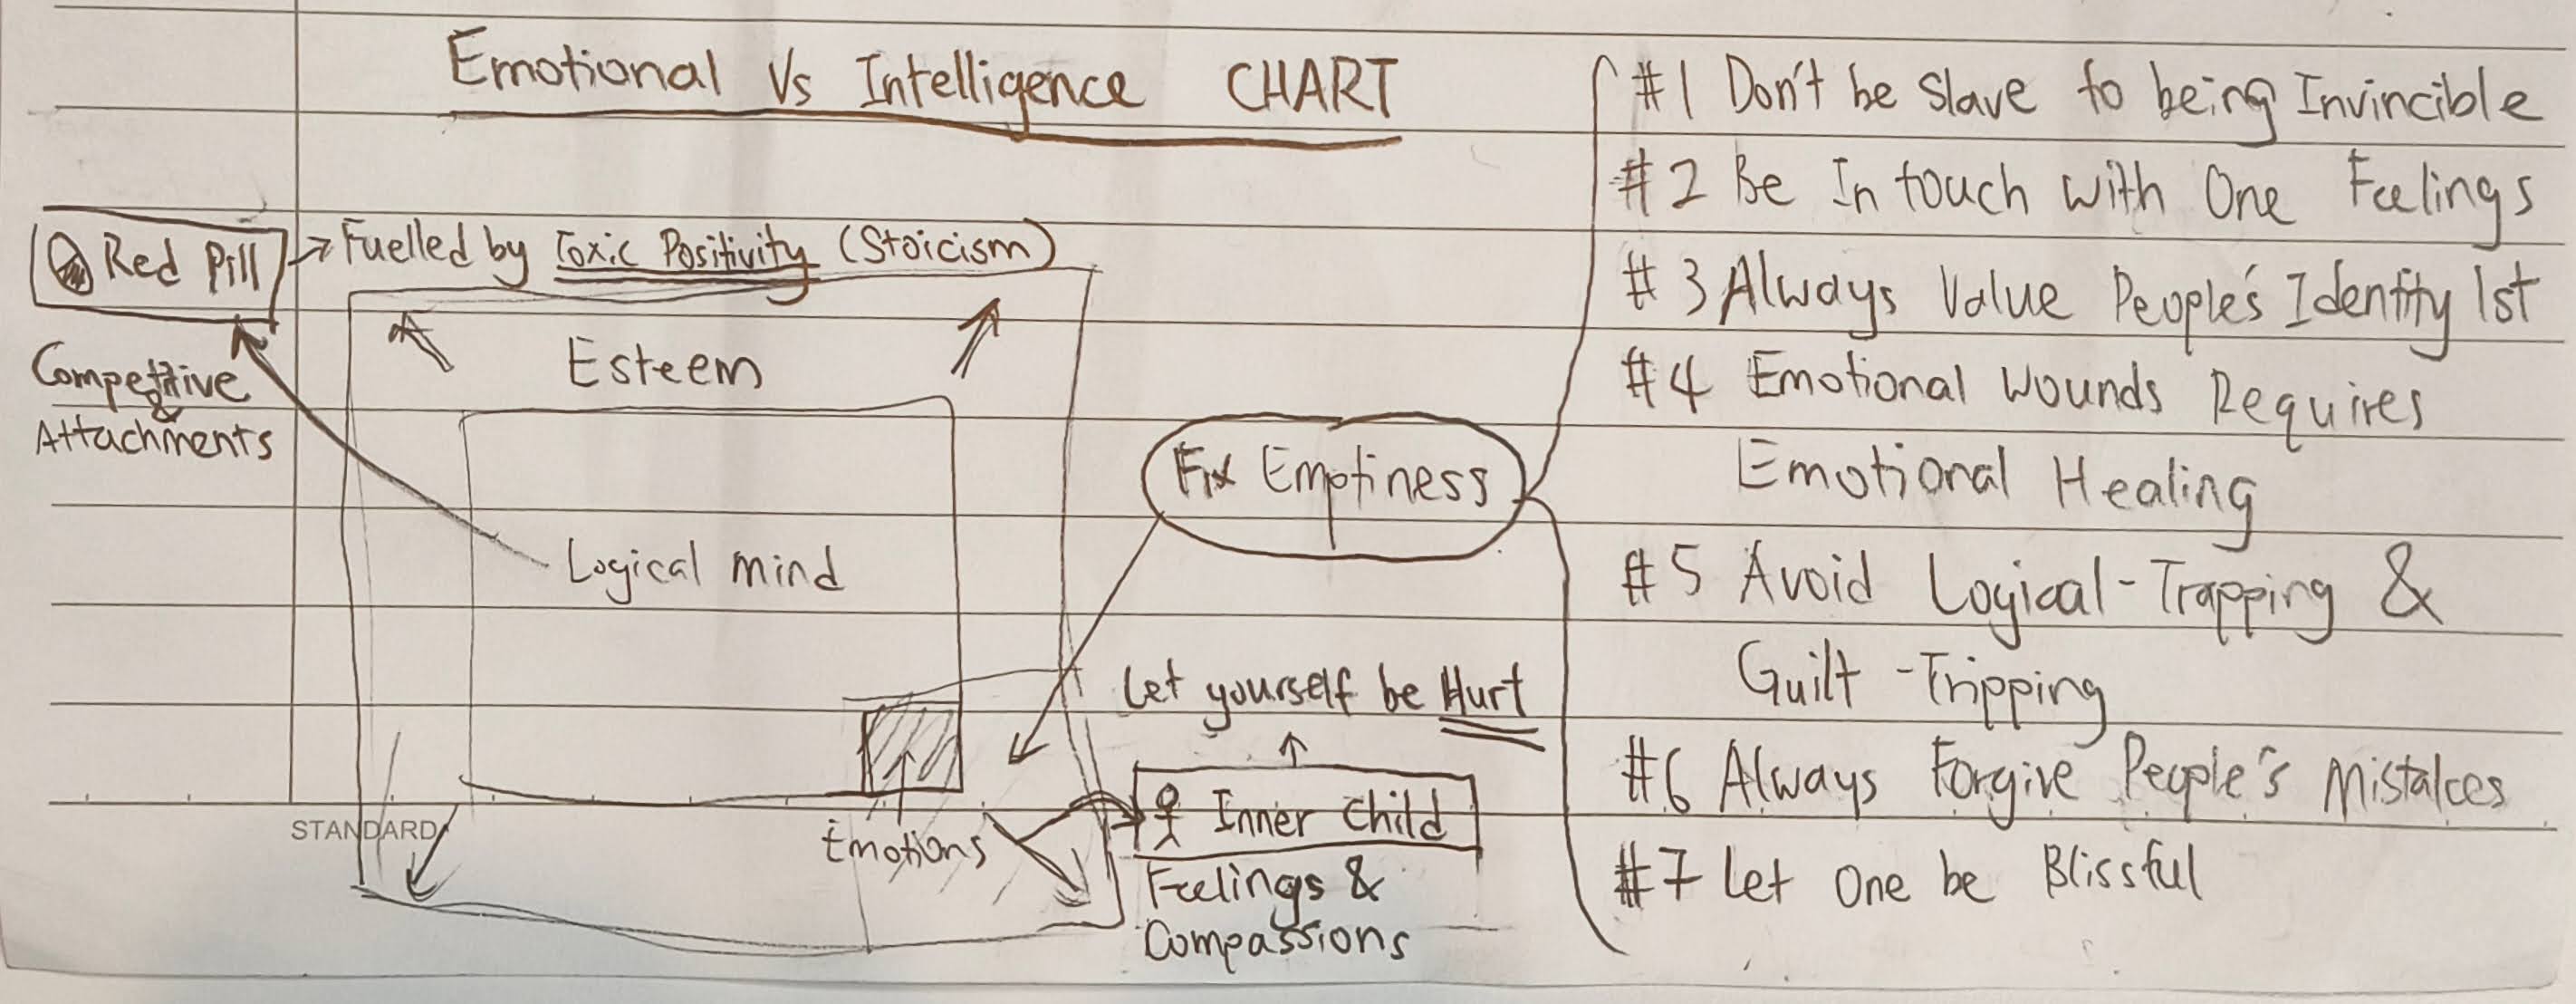 Emotional Vs Intelligence CHART
Red Pill
Fuelled by Toxic Positivity (Stoicism)
Competitive
&
Attachments
Esteem
Logical mind
Emotions
STANDARD
Fix Emptiness
Let yourself be Hurt
Inner Child
Feelings &
Compassions
#1 Don't be Slave to being Invincible
#2 Be In touch with One Feelings
#3 Always Value People's Identity 1st
#4 Emotional Wounds Requires
Emotional Healing
#5 Avoid Logical-Trapping &
Guilt-Tripping
#6 Always Forgive People's Mistakes
#7 Let One be Blissful